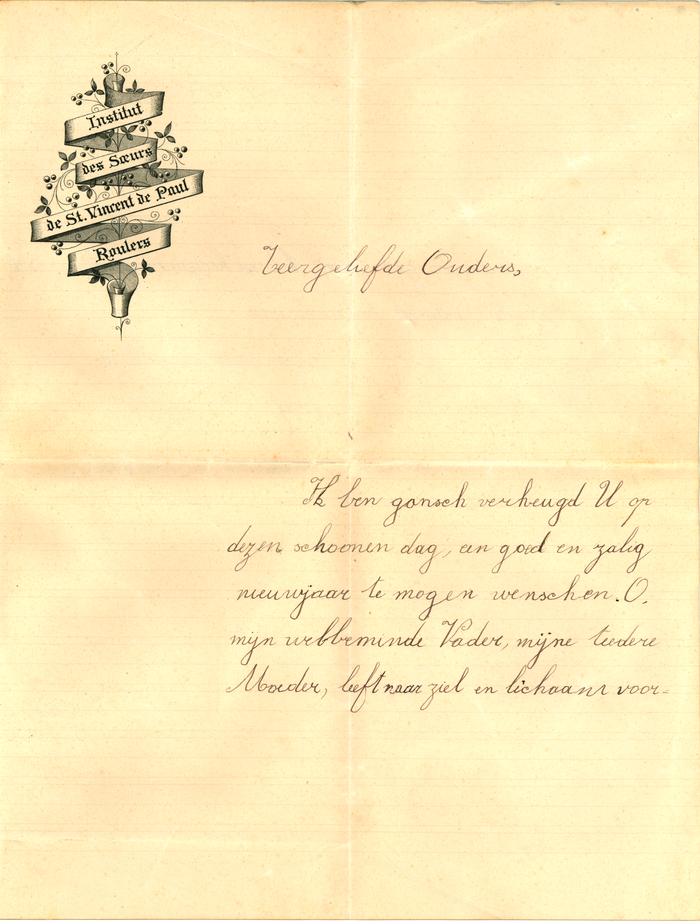 Institut
des Sœurs
de St. Vincent de Paul
Roulers
Teergeliefde Ouders,
Ik ben gansch verheugd U op
dezen schoonen dag, een goed en zalig
nieuwjaar te mogen wenschen. O,
mijn welbeminde Vader, mijne teedere
Moeder, leeft naar ziel en lichaam voor-